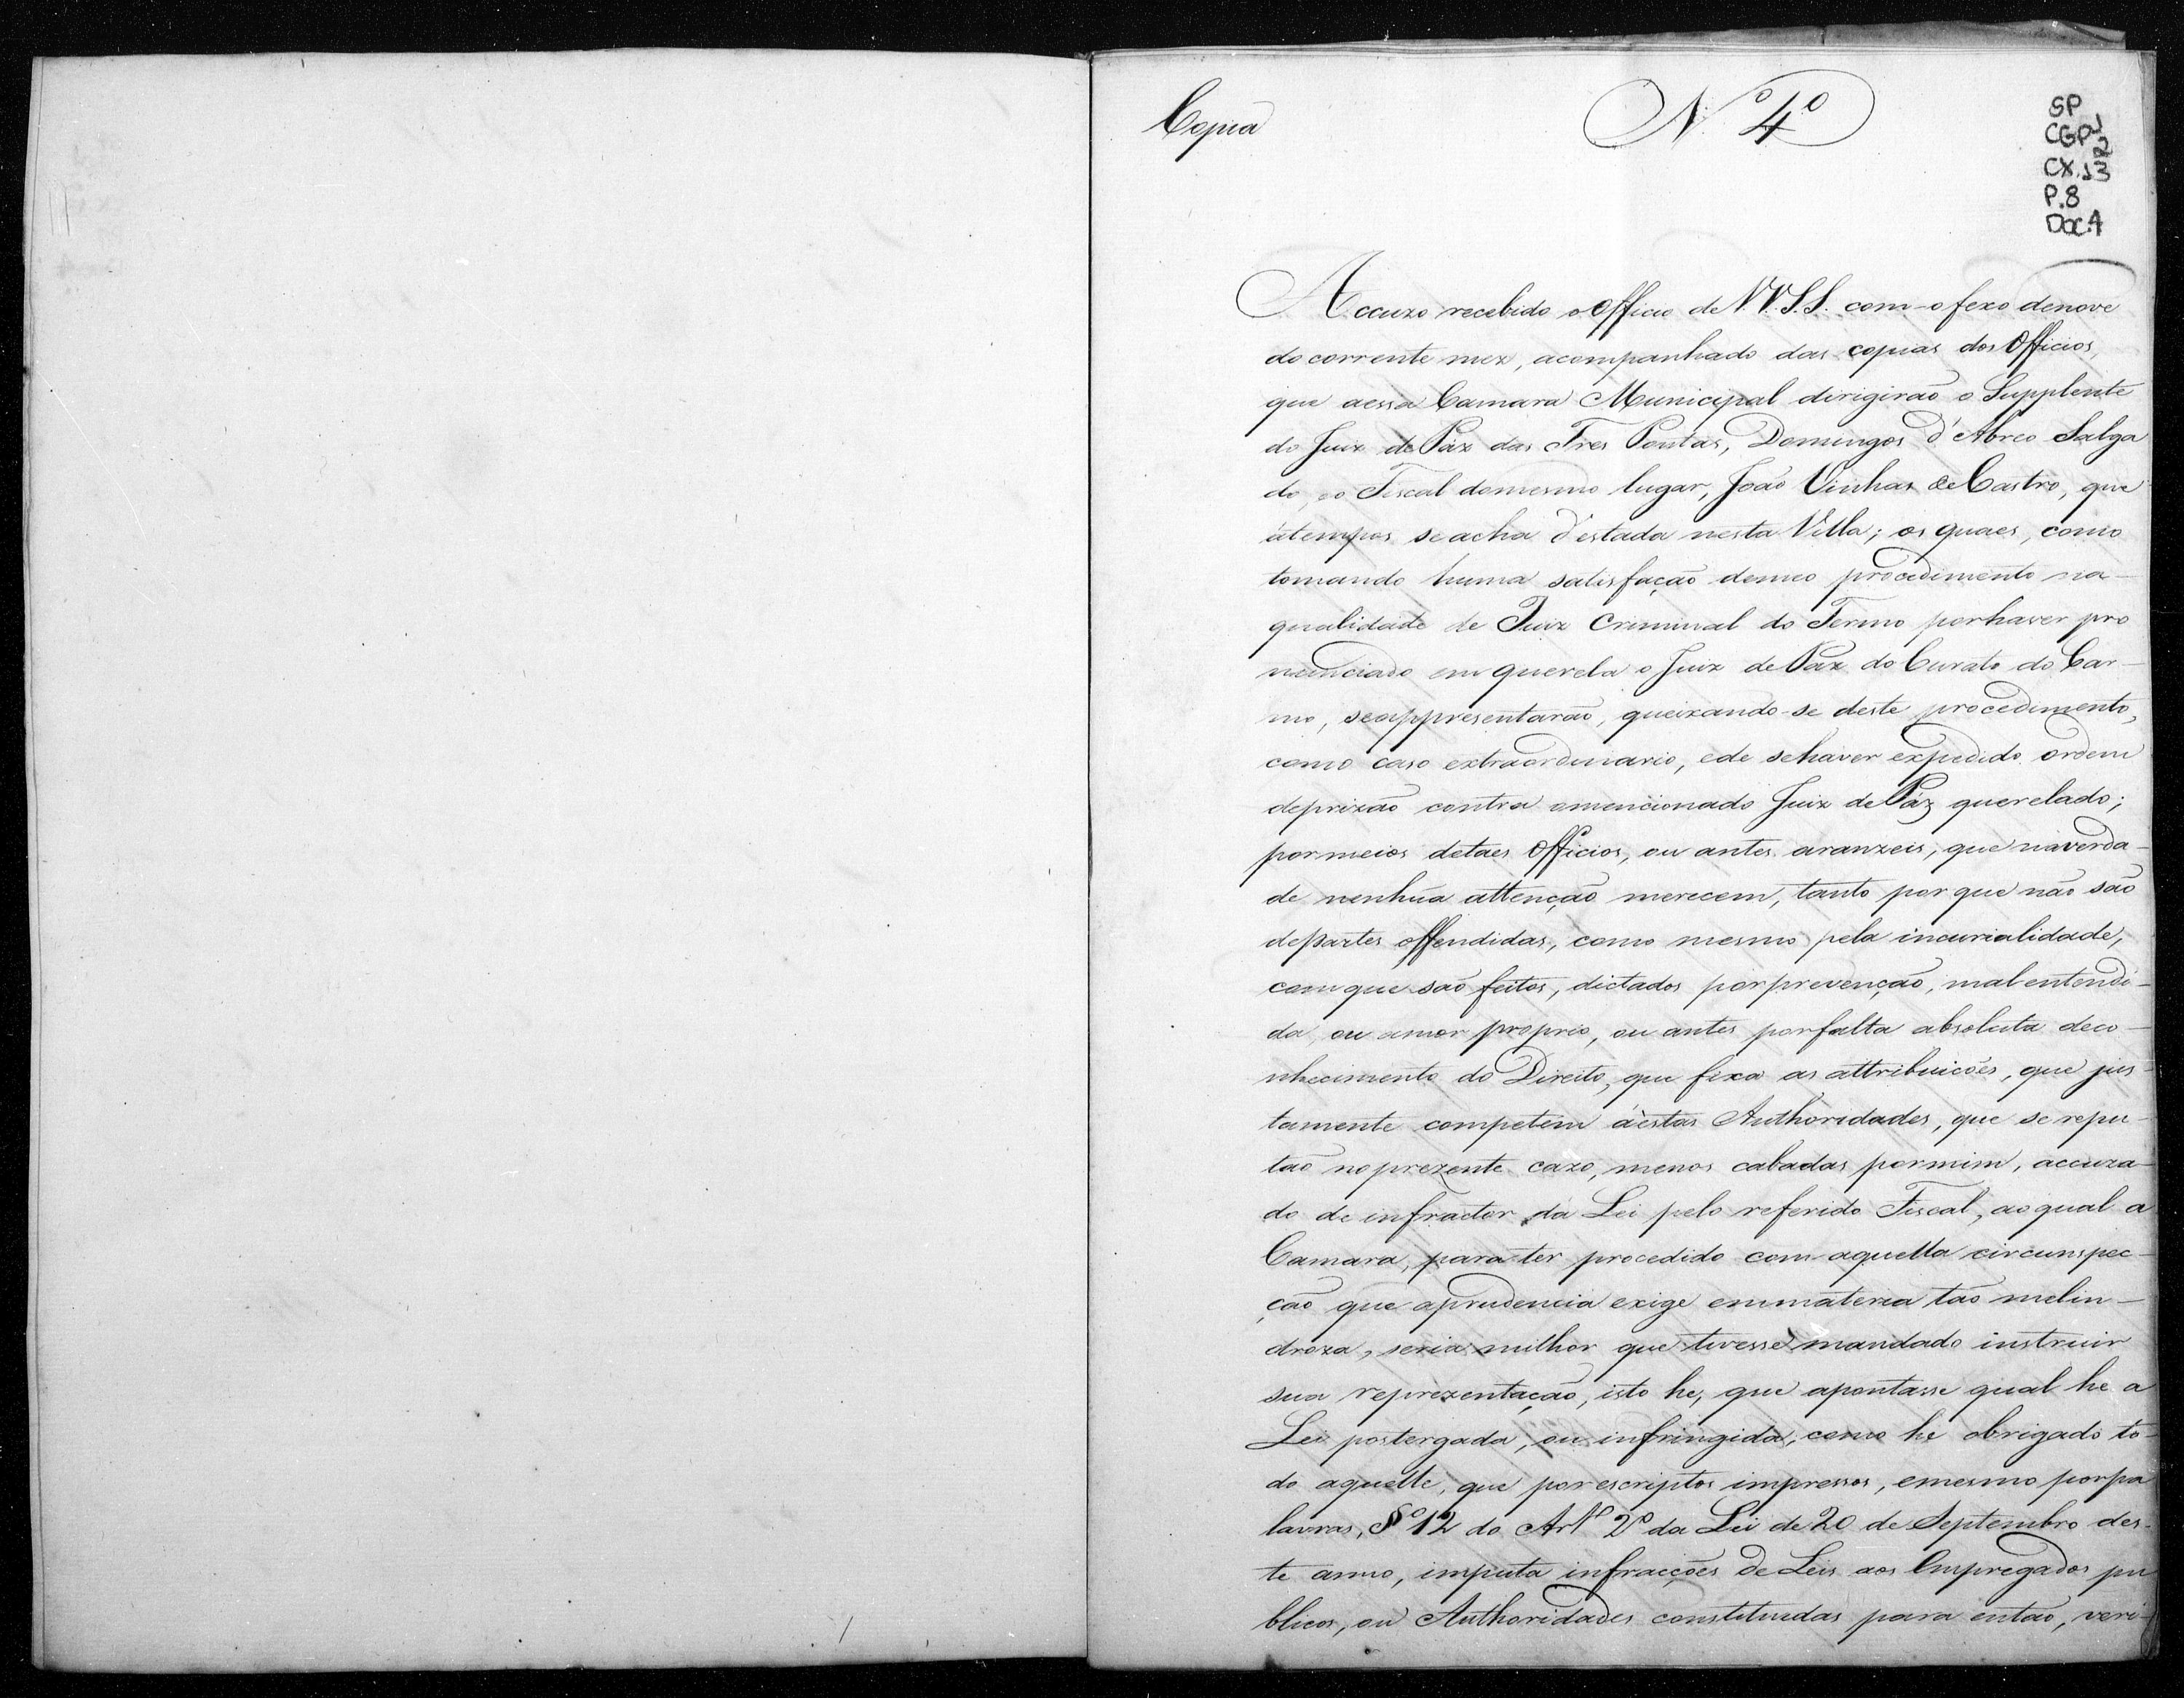 Copia
N.º 4º
SP
CGP1
2
CX.13
P.8
Doc.4
Accuzo recebido o Officio de V.V.S.S. com o fexo denove
do corrente mez, acompanhado das copias dos Officios,
que aessa Camara Municipal dirigirão o Supplente
do Juiz de Páz das Tres Pontas, Domingos d'Abreo Salga
do, eo Fiscal domesmo lugar, João Vinhas de Castro, que
átempos seacha d'estada nesta Villa; os quaes, como
tomando huma satisfação demeo procedimento na-
qualidade de Juiz Criminal do Termo porhaver pro
nunciado em querela o Juiz de Paz do Curato do Car-
mo, seappresentarão, queixando-se deste procedimento,
como caso extraordinario, ede sehaver expedido ordem
deprizão contra omencionado Juiz de Páz querelado;
pormeios detaes Officios, ou antes aranzeis, que naverda-
de nenhũa attenção merecem, tanto por que não são
departes offendidas, como mesmo pela incurialidade,
comque são feitos, dictados porprevenção, malentendi-
da, ou amor proprio, ou antes porfalta absoluta deco-
nhecimento do Direito, que fixa as attribuicões, que jus-
tamente competem áestas Authoridades, que se repu-
tão noprezente cazo, menos cabadas pormim, accuza-
do de infractor da Lei pelo referido Fiscal, aoqual a
Camara, para ter procedido com aquella circunspec-
ção que aprudencia exige emmateria tão melin-
droza, seria milhor que tivesse mandado instruir
sua reprezentação, isto he, que apontasse qual he a
Lei postergada, ou infringida, como he obrigado to-
do aquelle, que por escriptos impressos, emesmo porpa
lavras, §º 12 do Artº 2º da Lei de 20 de Septembro des-
te anno, imputa infracções de Leis aos Empregados pu
blicos, ou Authoridades constituidas para então, veri-